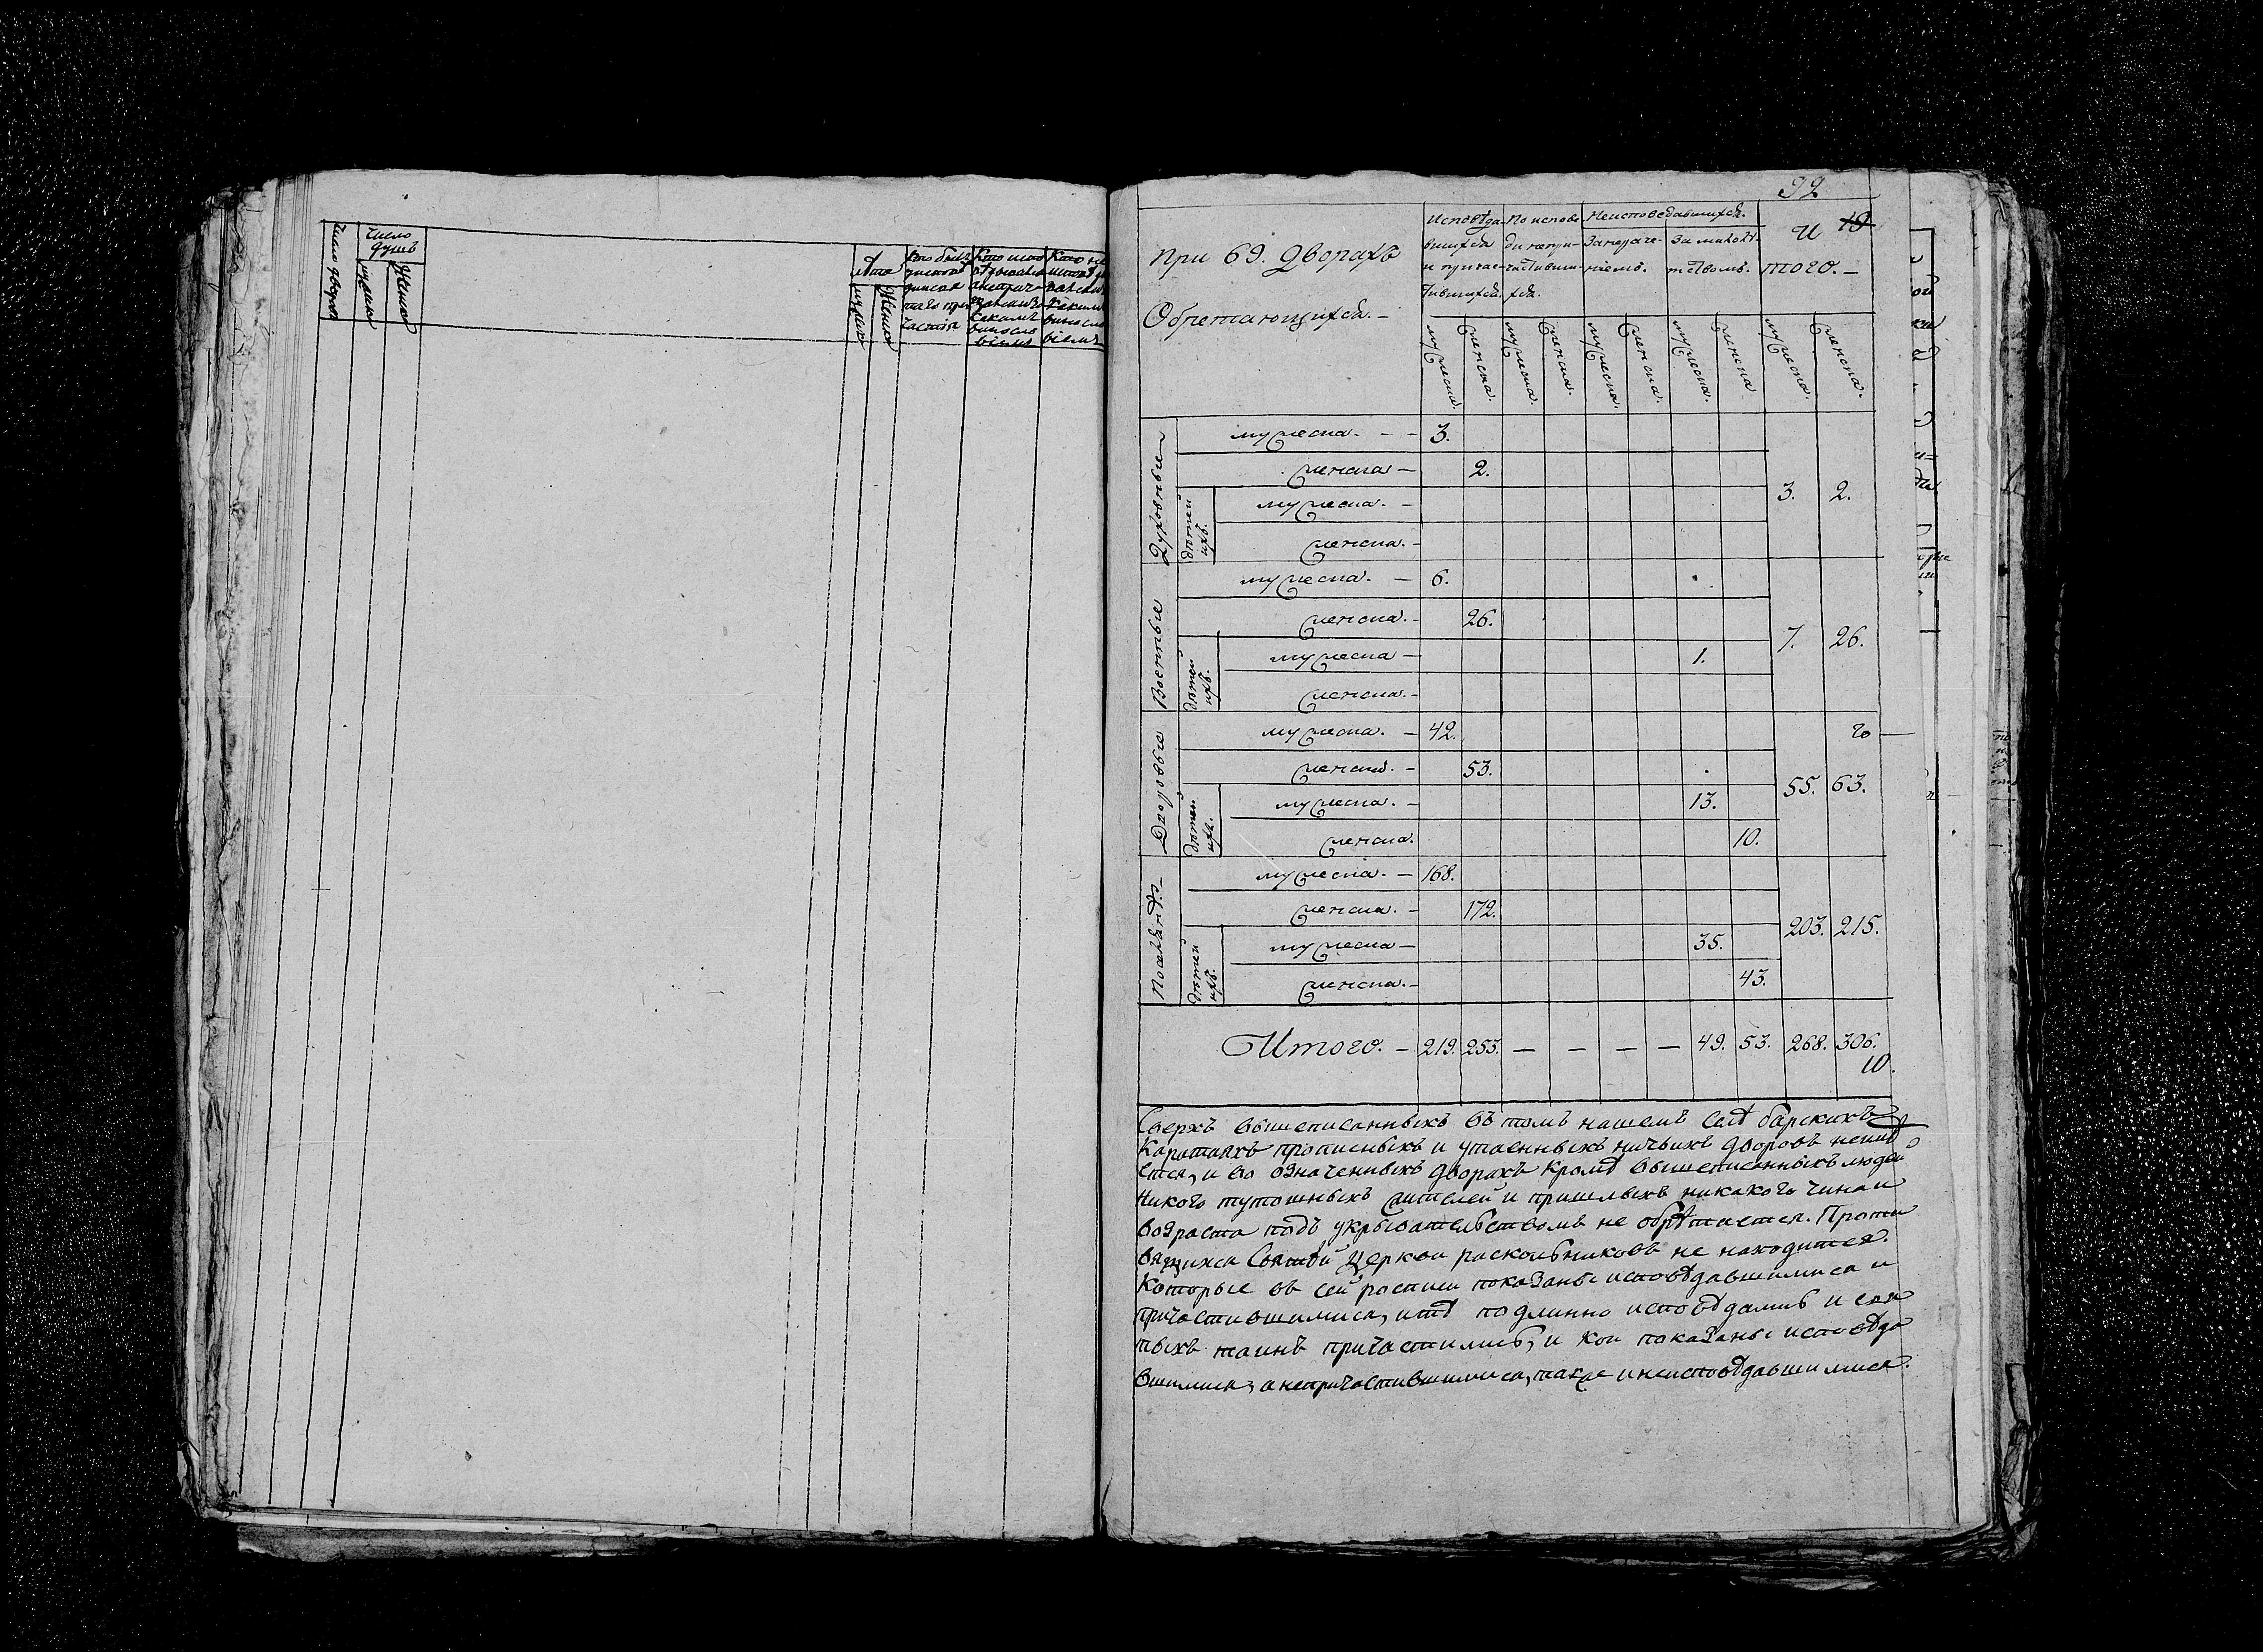 Число дворовъ
Число
душъ
мужеска
Женска
Лѣта
мужеска
Женска
92
10
При 69. Дворахъ
Обретающихся. –
Исповѣда-
вшихся
и причас-
тившихся.
По испове-
ди непри-
частивши-
хся.
Неисповедавшихся.
За нераче-
ніемъ.
За малолѣ-
тствомъ.
И
того. –
мужеска. женска. мужеска. женска. мужеска. женска. мужеска. женска мужеска. женска.
Духовные
мужеска. – – 3.
женска – 2.
дѣтей
ихъ.
мужеска. –
женска. –
3. 2.
Военные
мужеска. – 6.
женска. – 26.
дѣтей
ихъ.
мужеска – 1.
женска. –
7. 26.
Дворовые
мужеска. – 42.
женска. – 53.
дѣтей
ихъ.
мужеска. – 13.
женска. 10.
55. 63.
Поселянѣ –
мужеска. – 168.
женска. – 172.
дѣтей
ихъ.
мужеска – 35.
женска. – 43.
203. 215.
Итого. – 219. 253. – – – – 49. 53. 268. 306.
10.
Сверхъ вышеписанныхъ въ томъ нашемъ селѣ барскихъ
Каратаяхъ прописныхъ и утаенныхъ ничьихъ дворовъ неимѣ
ется, и во означенныхъ дворахъ кромѣ вышеписанныхъ людей
Никого тутошныхъ жителей и пришлыхъ никакого чина и
возраста подъ укрывательствомъ не обрѣтается. Проти
вящихся Святѣй Церкви раскольниковъ не находится.
Которые въ сей росписи показаны исповѣдавшимися и
причастившимися, итѣ подлинно исповѣдались и свя
тыхъ таинъ причастились, и кои показаны исповѣда
вшимися, а непричастившимися, также инеисповѣдавшимися.